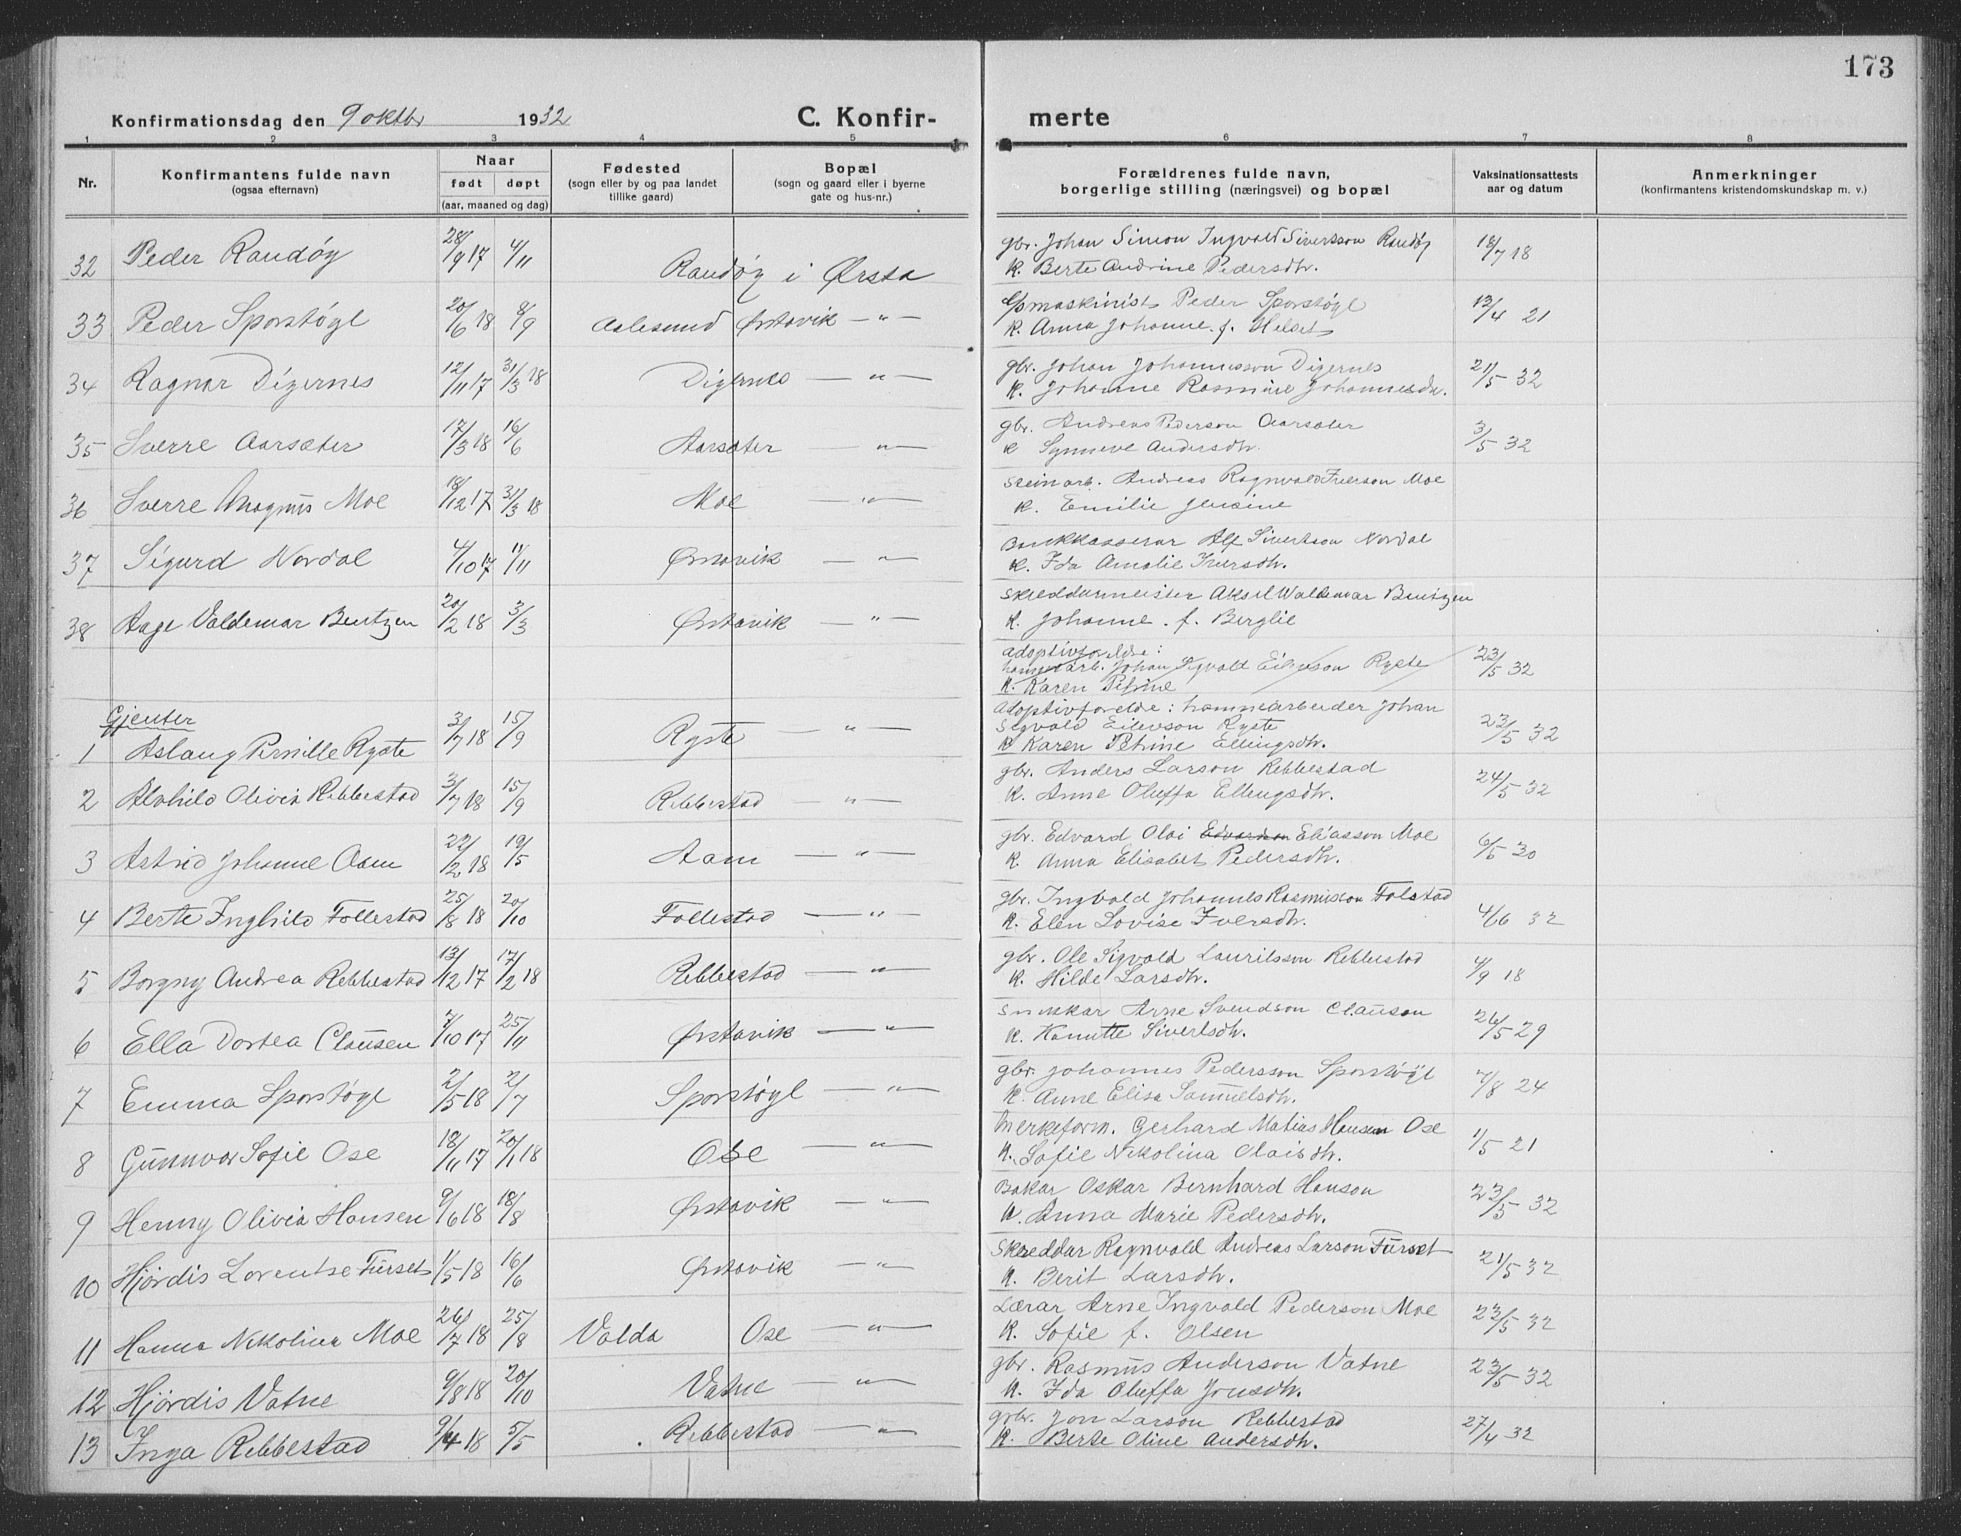 173
Konfirmationsdag den 9 oktbr 1932 C. Konfir- merte
1 2 3 4 5 6 7 8
Nr. Konfirmantens fulde navn (ogsaa efternavn) Naar født døpt (aar, maaned og dag) Fødested (sogn eller by og paa landet tillike gaard) Bopæl (sogn og gaard eller i byerne gate og hus-nr.) Forældrenes fulde navn, borgerlige stilling (næringsvei) og bopæl Vaksinationsattests aar og datum Anmerkninger (konfirmantens kristendomskundskap m. v.)
32 Peder Raudøy 28/9 17 4/11 Raudøy i Ørsta gbr. Johan Simon Ingvald Sivertsson Raudøy 18/7 18
k. Berte Andrine Pedersdtr.
33 Peder Sporstøyl 20/6 18 8/9 Aalesund Ørstavik — " — maskinist Peder Sporstøyl 13/4 21
k. Anna Johanne f. Helset
34 Ragnar Digernes 12/11 17 31/3 18 Digernes — " — gbr. Johan Johannesson Digernes 21/5 32
k. Johanne Rasmine Johannesdtr.
35 Sverre Aarsæter 17/3 18 16/6 Aarsæter — " — gbr. Andreas Pederson Aarsæter 3/5 32
k Synneve Andersdtr.
36 Sverre Magnus Moe 18/12 17 31/3 18 Moe — " — steinarb. Andreas Ragnvald Iverson Moe
k. Emilie Jensine
37 Sigurd Nordal 4/10 17 11/11 Ørstavik — " — Bankkasserar Alf Sivertson Nordal
k. Ida Amalie Iversdtr.
38 Aage Valdemar Bentzen 20/2 18 3/3 Ørstavik — " — skreddarmeister Aksel Waldemar Bentzen
k. Johanne f. Berglie
adoptivforeldre:
Johan Sigvald Eilevson Ryste 23/5 32
k. Karen Petrine
Gjenter
1 Aslaug Pernille Ryste 3/7 18 15/9 Ryste — " — Adoptivforelde: hamnearbeider Johan Sigvald Eilevson Ryste 23/5 32
k Karen Petrine Ellingsdtr.
2 Alvhild Olivia Rebbestad 3/7 18 15/9 Rebbestad — " — gbr. Anders Larson Rebbestad 24/5 32
k. Anne Oluffa Ellingsdtr.
3 Astrid Johanne Aam 22/2 18 19/5 Aam — " — gbr. Edvard Olai Edvardson Eliasson Moe 6/5 30
k. Anna Elisabet Pedersdtr.
4 Berte Inghild Follestad 25/8 18 20/10 Follestad — " — gbr. Ingvald Johannes Rasmusson Folstad 4/6 32
k. Elen Lovise Iversdtr.
5 Borgny Andrea Rebbestad 13/12 17 17/2 18 Rebbestad — " — gbr. Ole Sigvald Lauritsson Rebbestad 4/9 18
k. Hilde Larsdtr.
6 Ella Dortea Clausen 7/10 17 25/11 Ørstavik — " — Snikkar Arne Svendson Clauson 26/5 29
k. Hanutte Sivertsdtr.
7 Emma Sporstøyl 2/5 18 2/7 Sporstøyl — " — gbr. Johannes Pedersson Sporstøyl 7/8 24
k. Anne Elisa Samuelsdtr.
8 Gunnvor Sofie Ose 18/11 17 20/1 18 Ose — " — Merkeform. Gerhard Matias Hansen Ose 1/5 21
k. Sofie Nikolina Olaisdtr.
9 Henny Olivia Hansen 9/6 18 18/8 Ørstavik — " — Bakar Oskar Bernhard Hanson 23/5 32
k. Anna Marie Pedersdtr.
10 Hjørdis Lorentse Furset 1/5 18 16/6 Ørstavik — " — Skreddar Ragnvald Andreas Larson Furset 21/5 32
k. Berit Larsdtr.
11 Hanna Nikolina Moe 26/7 18 25/8 Volda Ose — " — Lærar Arne Ingvald Pederson Moe 23/5 32
k. Sofie f. Olsen
12 Hjørdis Vatne 9/8 18 20/10 Vatne — " — gbr. Rasmus Anderson Vatne 23/5 32
k. Ida Oluffa Jonsdtr.
13 Inga Rebbestad 9/4 18 5/5 Rebbestad — " — gbr. Jon Larson Rebbestad 27/4 32
k. Berte Oline Andersdtr.